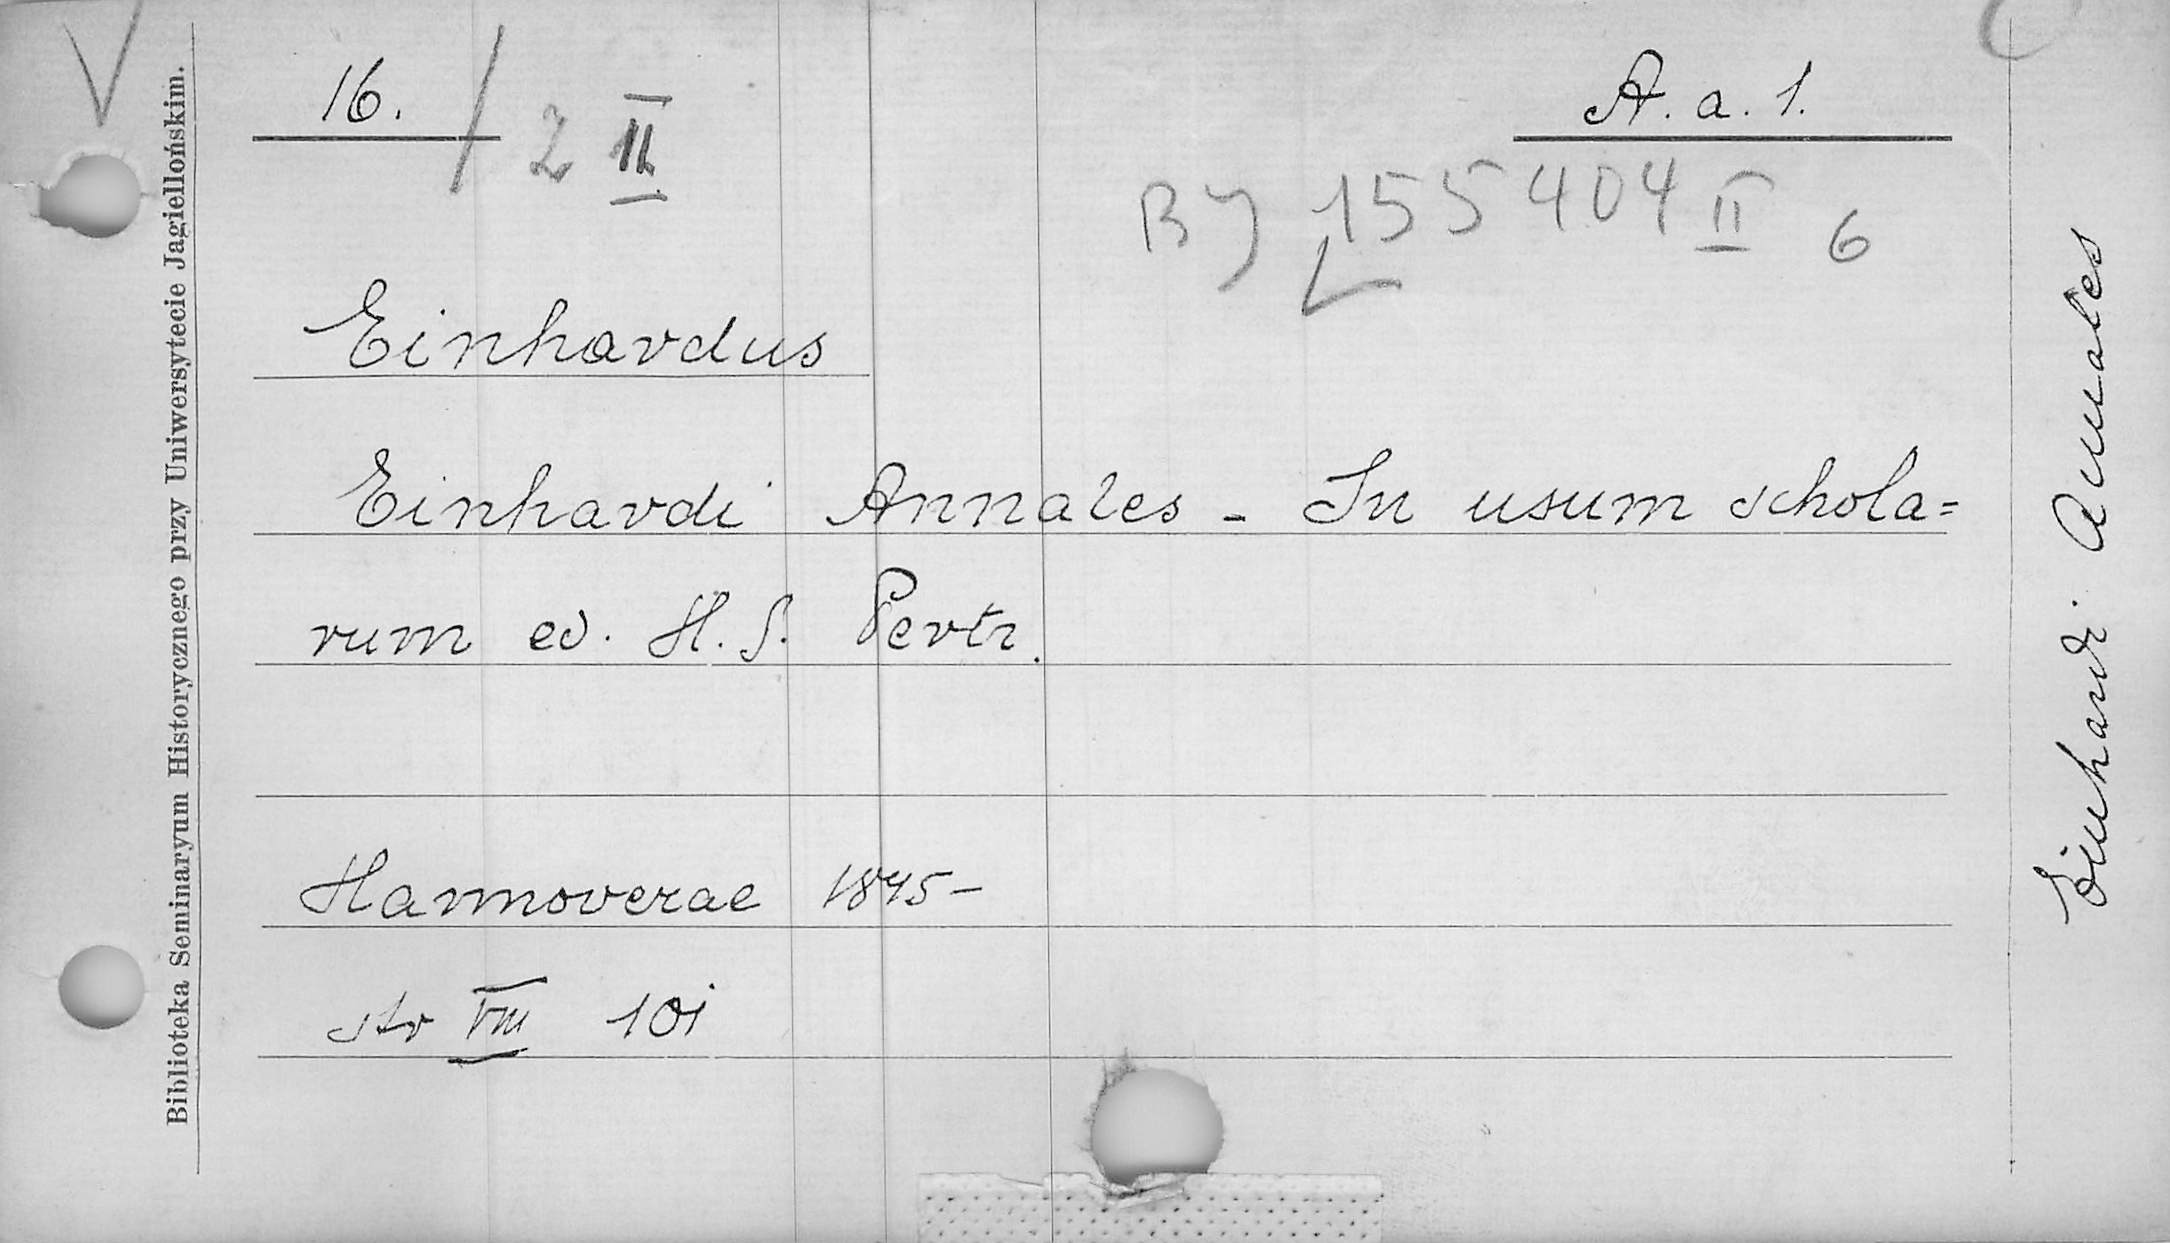 V
16. / 2 II
A. a. 1.
BJ 155404 II 6
Einhardus
Einhardi Annales - In usum schola=
rum ed. H. P. Pertz.
Hannoverae 1845-
str VIII 101
Biblioteka Seminaryum Historycznego przy Uniwersytecie Jagiellońskim.
Einhardi Annales